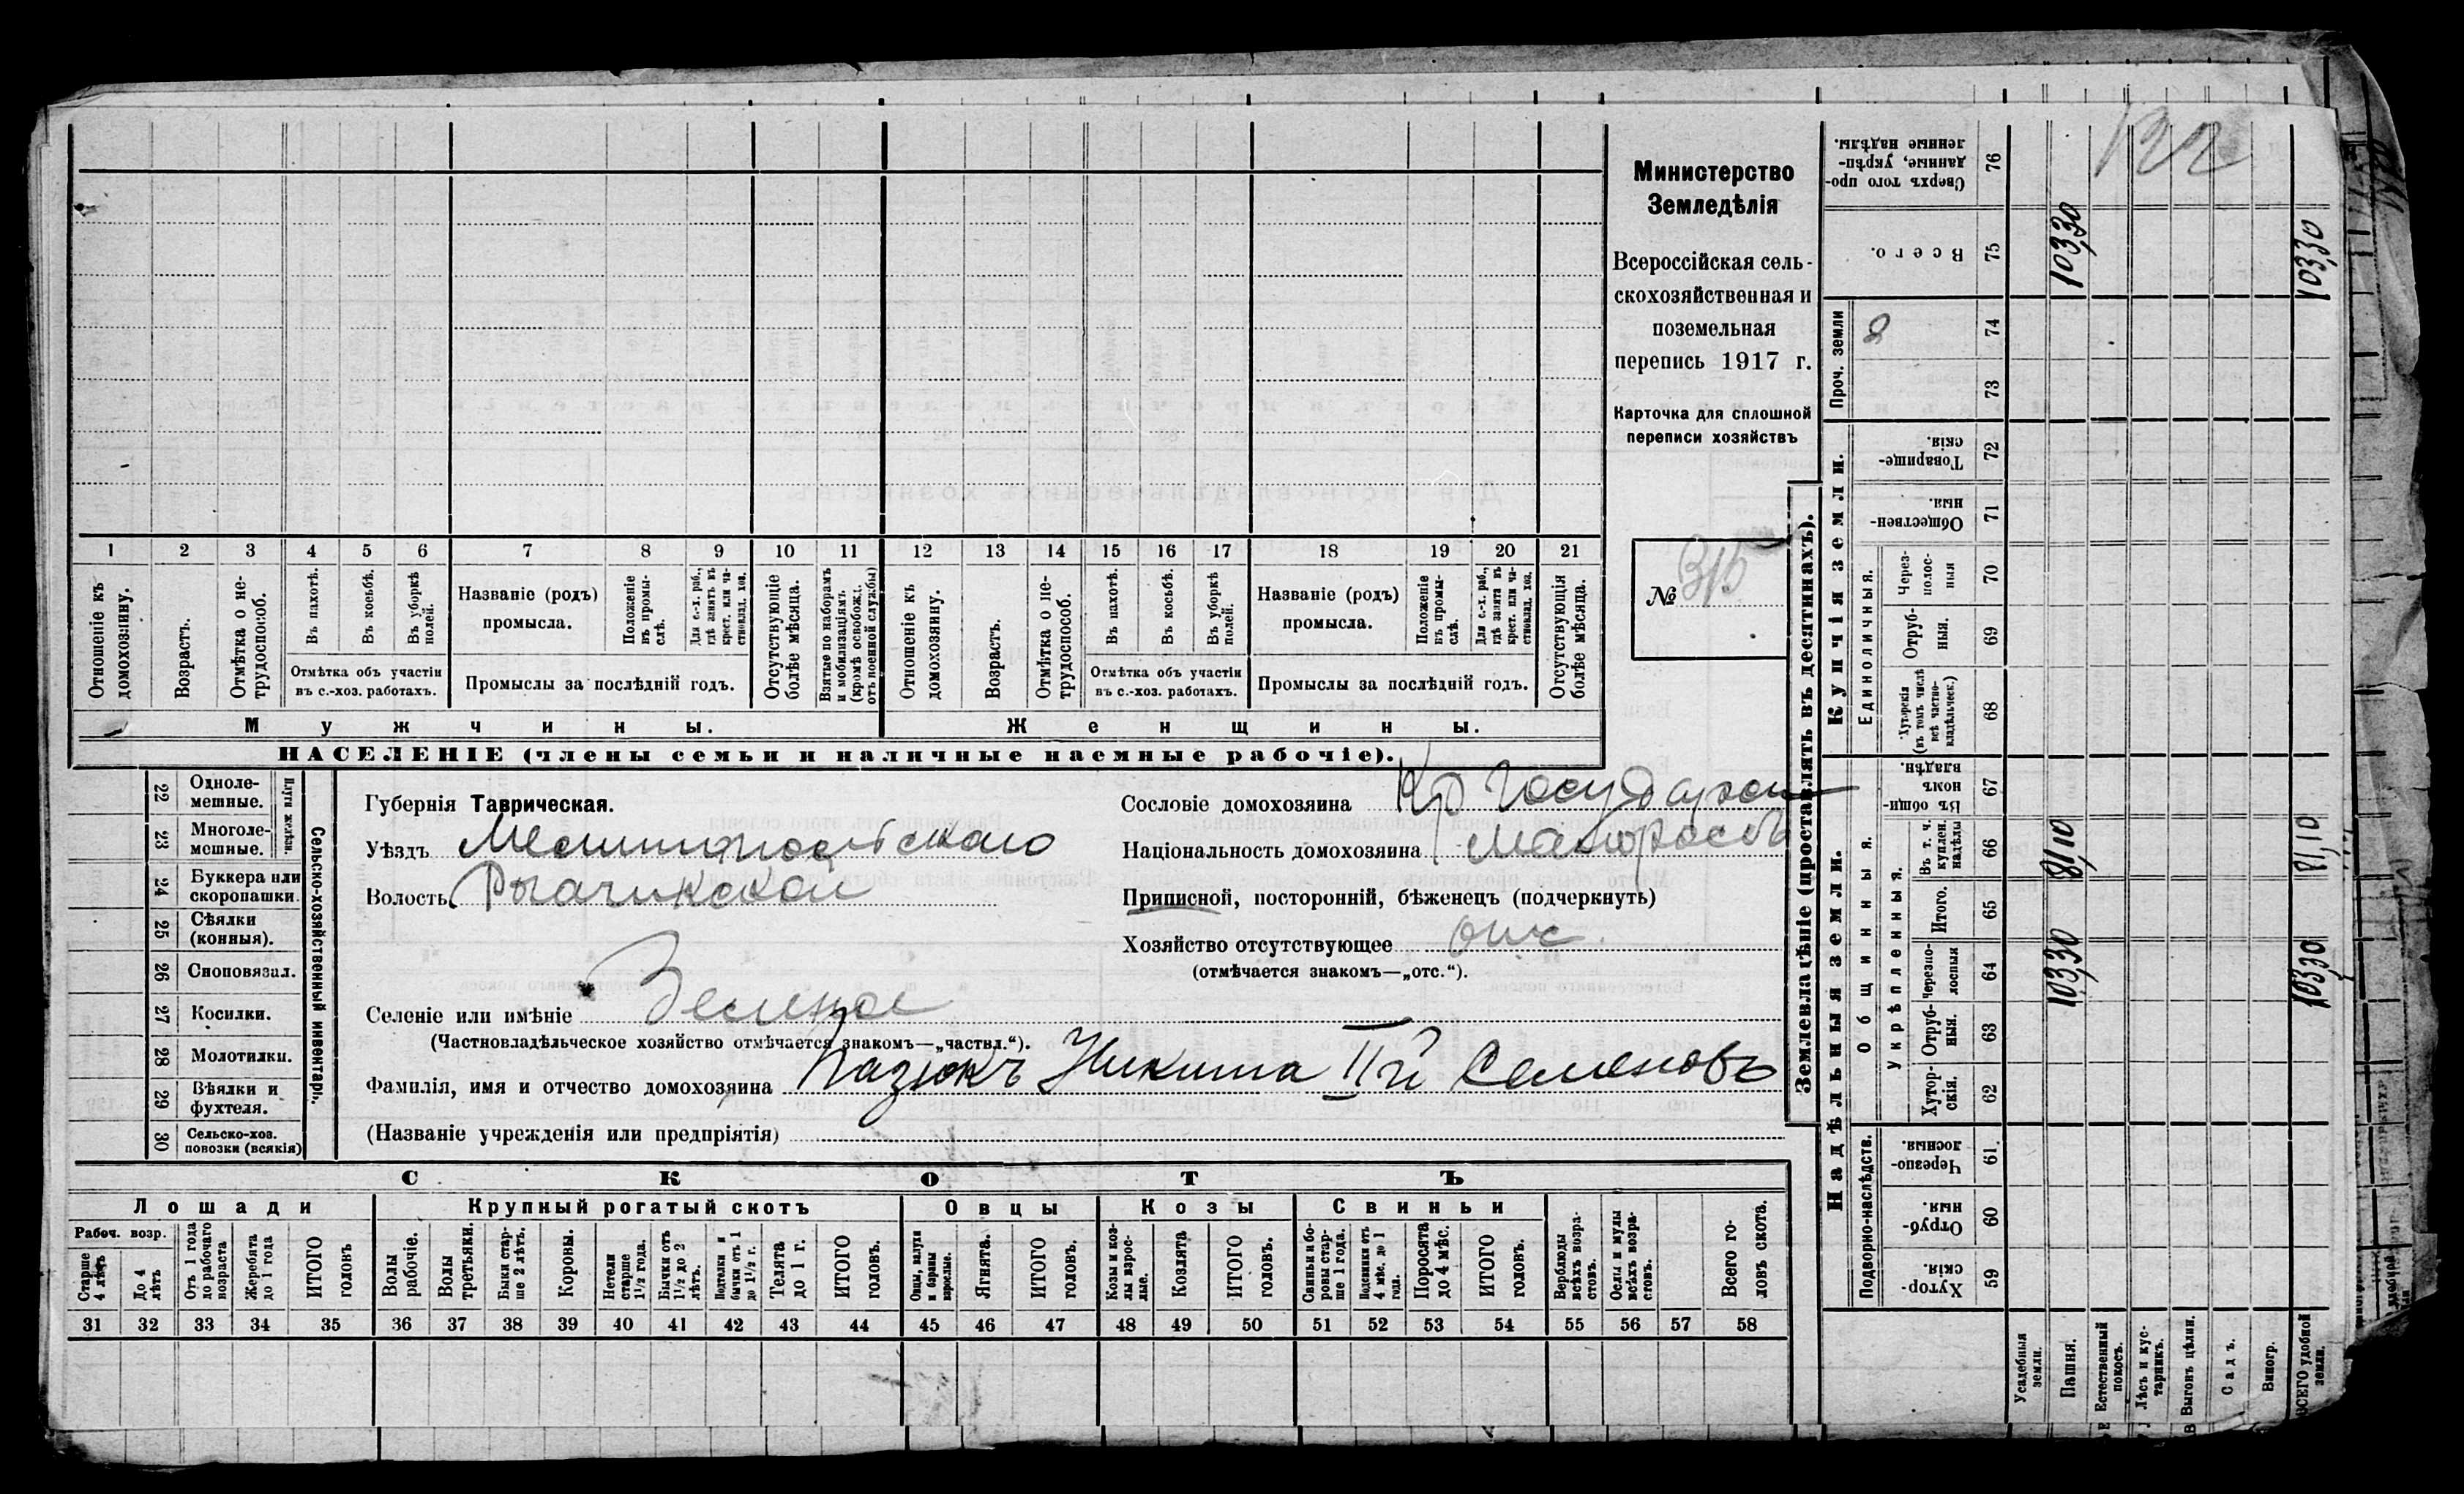 Министерство
Земледѣлія
Всероссійская сель-
скохозяйственная и
поземельная
перепись 1917 г.
Карточка для сплошной
переписи хозяйствъ
№ 315
1 2 3 4 5 6 7 8 9 10 11 12 13 14 15 16 17 18 19 20 21
Отношеніе къ домохозяину.
Возрастъ.
Отмѣтка о не-трудоспособ.
Въ пахотѣ.
Въ косьбѣ.
Въ уборкѣ полей.
Отмѣтка объ участіи
въ с.-хоз. работахъ.
Названіе (родъ)
промысла.
Положеніе въ промы-слѣ.
Для с.-х. раб., гдѣ занятъ въ крест. или ча-стновлад. хоз.
Промыслы за послѣдній годъ.
Отсутствующіе болѣе мѣсяца.
Взятые по наборамъ и мобилизаціямъ (кромѣ освобожд. отъ военной службы)
Отношеніе къ домохозяину.
Возрастъ.
Отмѣтка о не-трудоспособ.
Въ пахотѣ.
Въ косьбѣ.
Въ уборкѣ полей.
Отмѣтка объ участіи
въ с.-хоз. работахъ.
Названіе (родъ)
промысла.
Положеніе въ промы-слѣ.
Для с.-х. раб., гдѣ занята въ крест. или ча-стновлад. хоз.
Промыслы за послѣдній годъ.
Отсутствующія болѣе мѣсяца.
Мужчины. Женщины.
НАСЕЛЕНІЕ (члены семьи и наличные наемные рабочіе).
22 Одноле-мешные.
23 Многоле-мешные.
Плуги желѣзн.
24 Буккера или скоропашки.
25 Сѣялки (конныя).
26 Сноповязал.
27 Косилки.
28 Молотилки.
29 Вѣялки и фухтеля.
30 Сельско-хоз. повозки (всякія)
Сельско-хозяйственный инвентарь.
Губернія Таврическая.
Уѣздъ Мелитопольскаго
Волость Рогачикской
Сословіе домохозяина Кр Государст
Національность домохозяина Малороссъ
Приписной, посторонній, бѣженецъ (подчеркнуть)
Хозяйство отсутствующее отс.
(отмѣчается знакомъ—„отс.“).
Селеніе или имѣніе Зеленое
(Частновладѣльческое хозяйство отмѣчается знакомъ—„частвл.“).
Фамилія, имя и отчество домохозяина Пазюкъ Никита IIй Семеновъ
(Названіе учрежденія или предпріятія)
СКОТЪ
Лошади Крупный рогатый скотъ Овцы Козы Свиньи
Рабоч. возр.
Старше 4 лѣтъ
До 4 лѣтъ
Отъ 1 года до рабочаго возраста
Жеребята до 1 года
ИТОГО головъ
Волы рабочіе.
Волы третьяки.
Быки стар-ше 2 лѣтъ.
Коровы.
Нетели старше 1½ года.
Бычки отъ 1½ до 2 лѣтъ.
Подтелки и бычки отъ 1 до 1½ г.
Телята до 1 г.
ИТОГО головъ.
Овцы, валухи и бараны взрослые.
Ягнята.
ИТОГО головъ.
Козы и коз-лы взрос-лые.
Козлята
ИТОГО головъ.
Свиньи и бо-ровы стар-ше 1 года.
Подсвинки отъ 4 мѣс. до 1 года.
Поросята до 4 мѣс.
ИТОГО головъ.
Верблюды всѣхъ возра-стовъ.
Ослы и мулы всѣхъ возра-стовъ.
Всего го-ловъ скота.
31 32 33 34 35 36 37 38 39 40 41 42 43 44 45 46 47 48 49 50 51 52 53 54 55 56 57 58
Землевладѣніе (проставлять въ десятинахъ).
Сверхъ того про-данные, укрѣп-ленные надѣлы. 76
122
Всего. 75 103,30 103,30
Проч. земли
74
73
Купчія земли.
Товарище-скія. 72
Обществен-ныя 71
Единоличныя.
Через-полос-ныя 70
Отруб-ныя. 69
Хуторскія (въ томъ числѣ всѣ частно-владѣльческ.) 68
Надѣльныя земли.
Общинныя.
Въ общи-номъ владѣн. 67
Укрѣпленныя.
Въ т. ч. куплен. надѣлы 66 81,10 81,10
Итого. 65
Черезпо-лосныя 64 103,30 103,30
Отруб-ныя. 63
Хутор-скія. 62
Подворно-наслѣдств.
Черезпо-лосныя. 61.
Отруб-ныя. 60
Хутор-скія. 59
Усадебныя земли.
Пашня.
Естественный покосъ.
Лѣсъ и кус-тарникъ.
Выгонъ цѣлин.
Садъ.
Виногр.
ВСЕГО удобной земли.